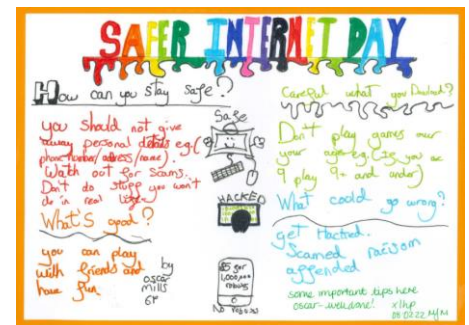 SAFER INTERNET DAY
How can you stay safe?
you should not give
away personal details eg.(
phone number/address/name).
Watch out for scams.
Don't do stuff you won't
do in real
What's good?
you can play
with friends and
have fun
by
oscar
mills
6P
Safe
HACKED
£5 for
1,000,000
robux
No robux
Careful what you
Don't play games over
your age eg.(if you are
9 play 9+ and under)
What could go wrong?
get Hacked.
Scamed racisom
affended
some important tips here
oscar - well done!
08.02.22